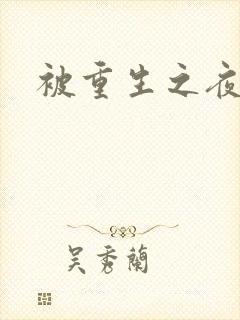 被重生之夜
吴秀蘭